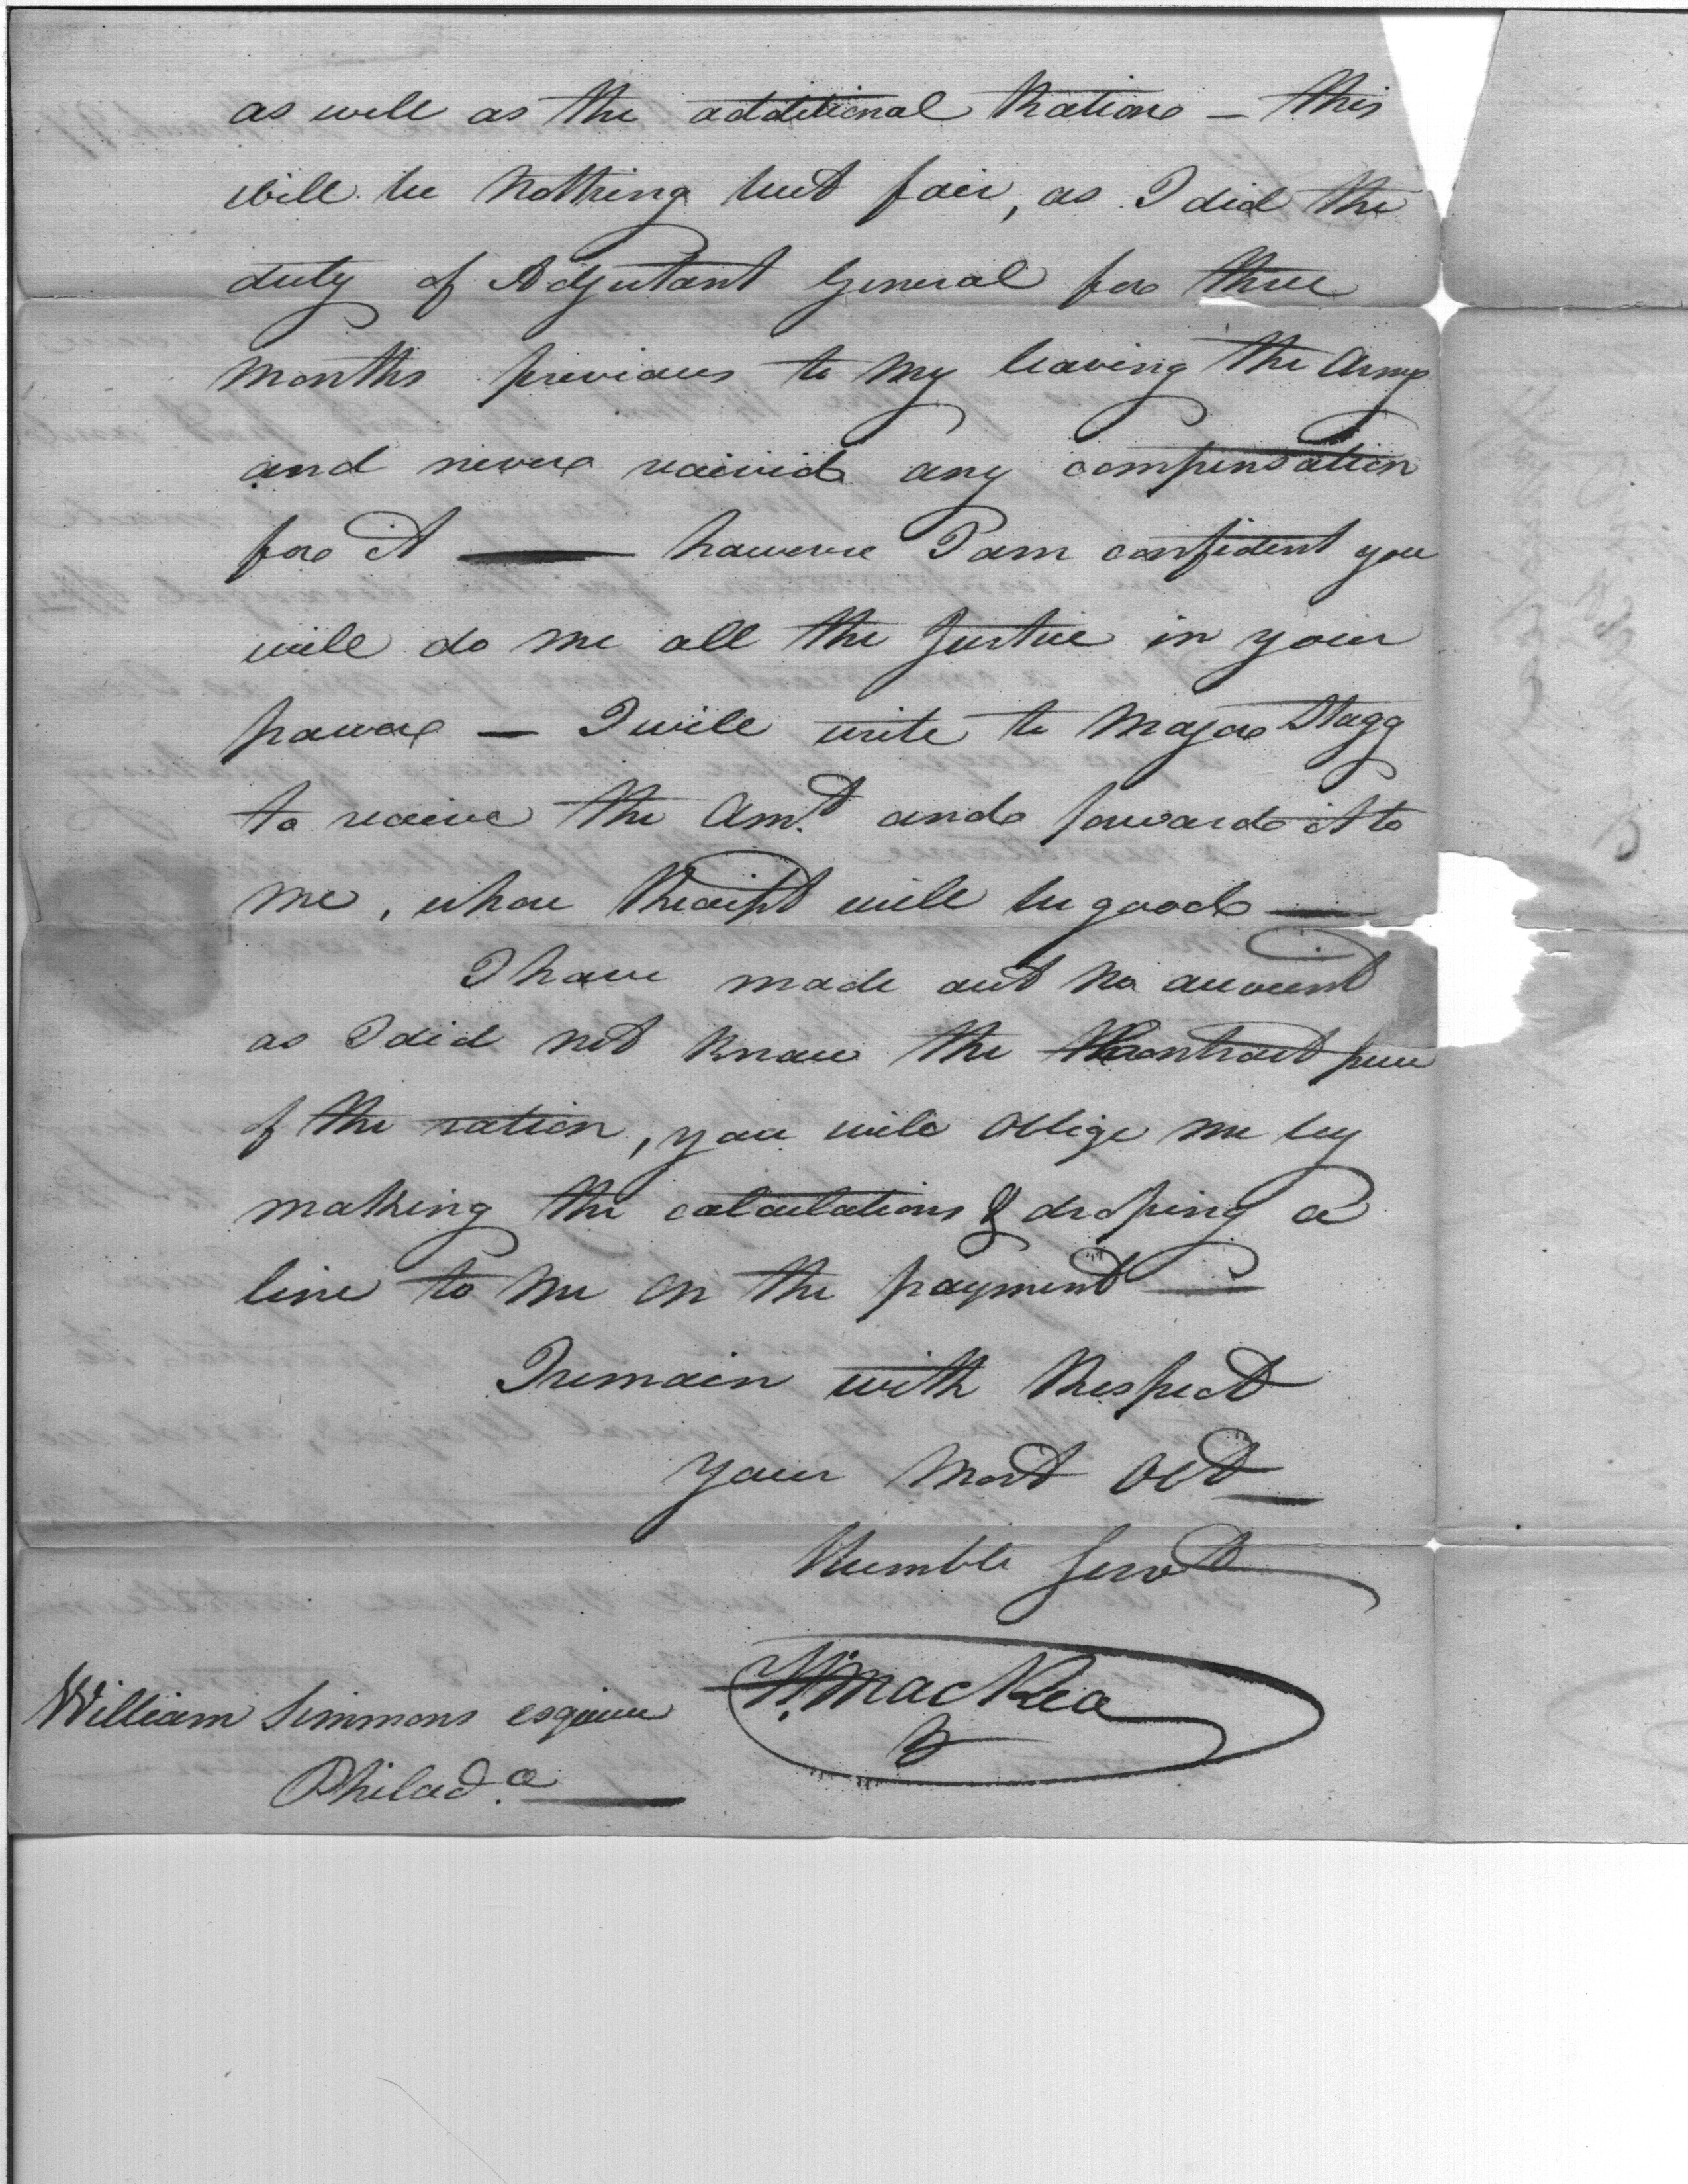 as well as the additional Rations — this
will be Nothing but fair, as I did the
duty of Adjutant General for three
Months previous to My leaving the Army
and never received any compensation
for it — however I am confident you
will do me all the Justice in your
power — I will write to Major Stagg
to receive the Am.t and forward it to
me, whose Receipt will be good —
I have made out no account
as I did not know the Contract price
of the ration, you will oblige me by
making the calculations & droping a
line to me on the payment —
I remain with Respect
your Most Obt
Humble Servt
William Simmons esquire
Philad.a